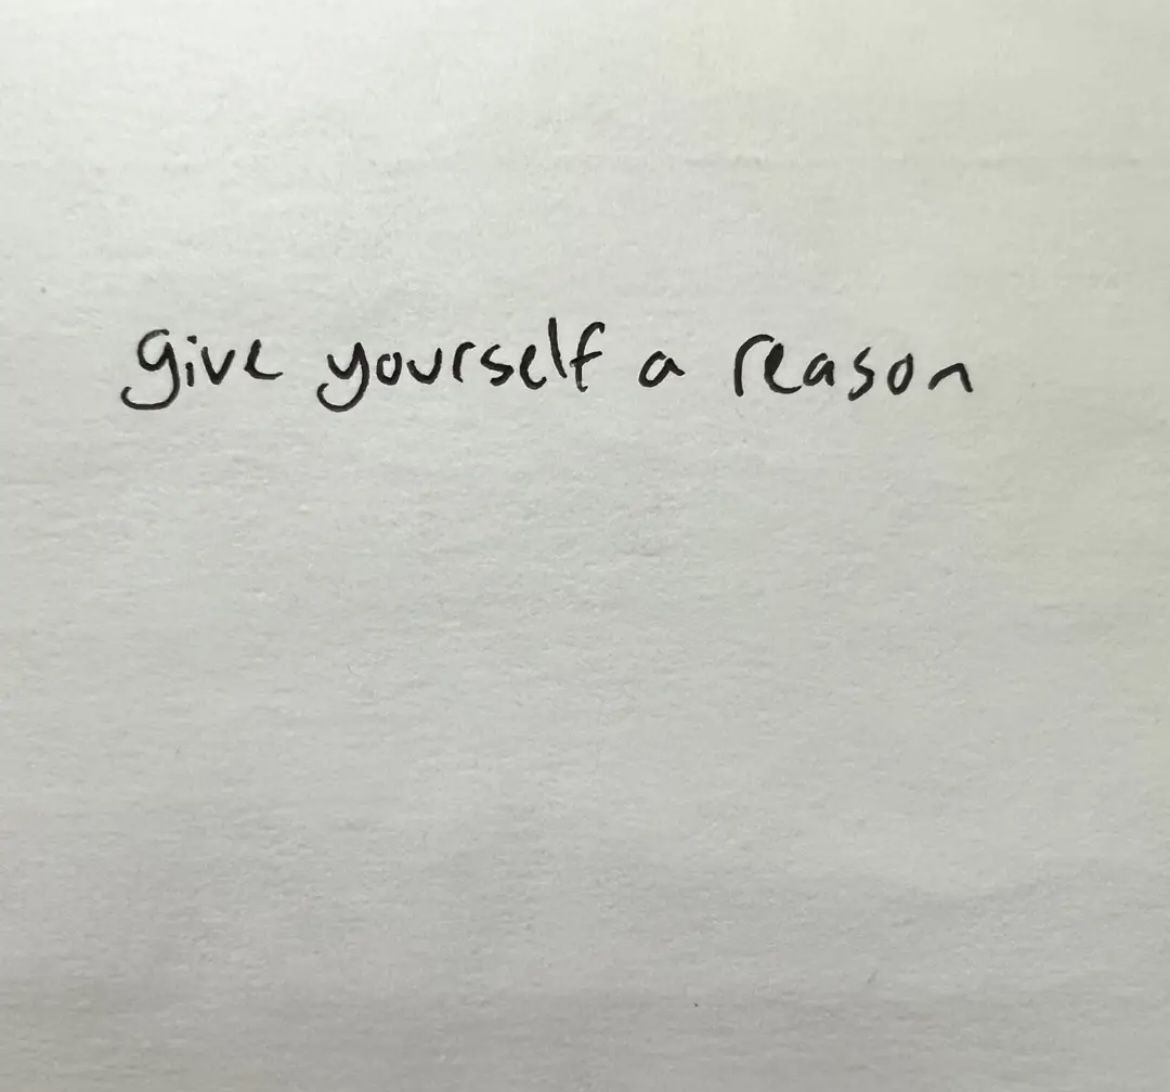 give yourself a reason